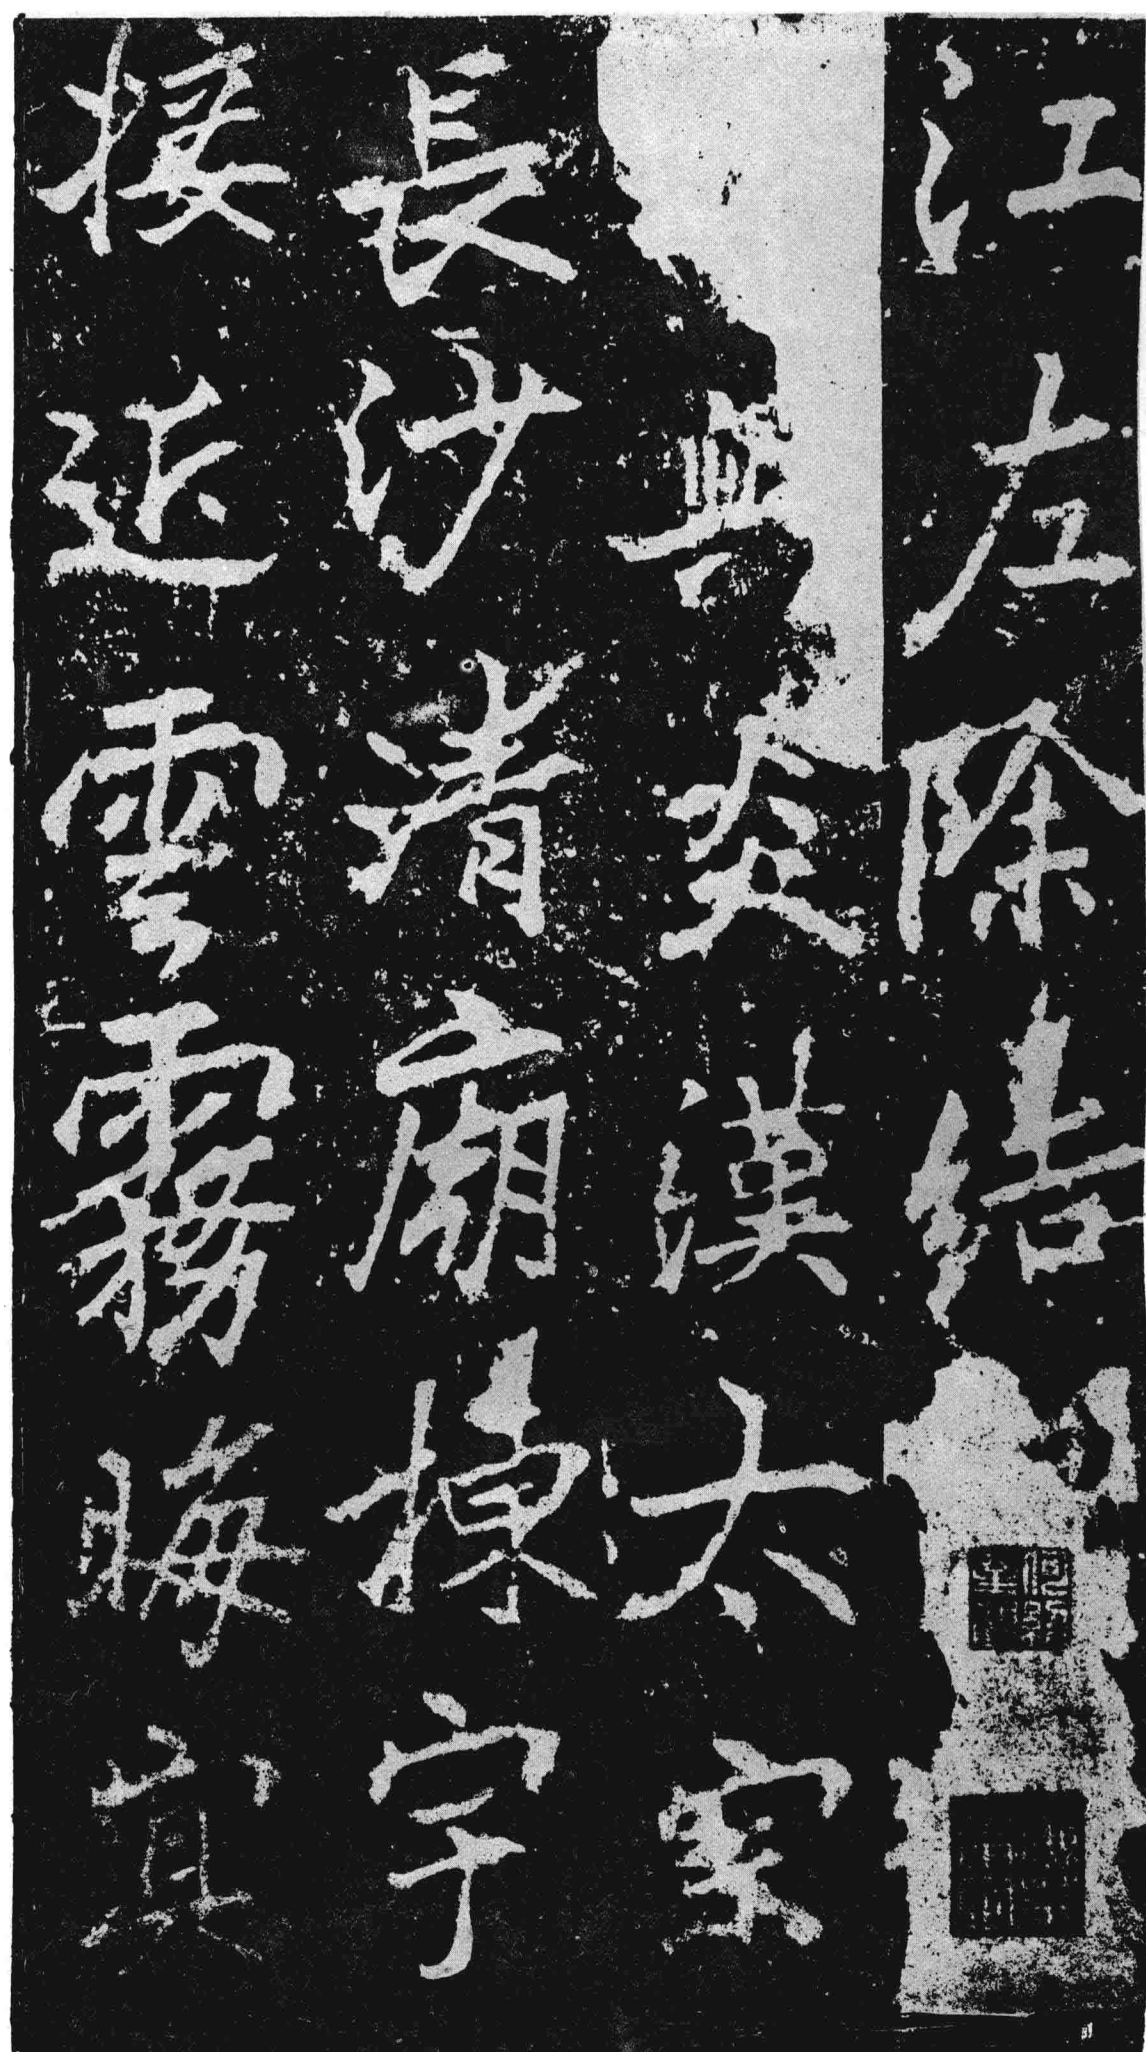 江左除結
與炎漢太宗
長沙清廟棟宇
接近雲霧晦冥